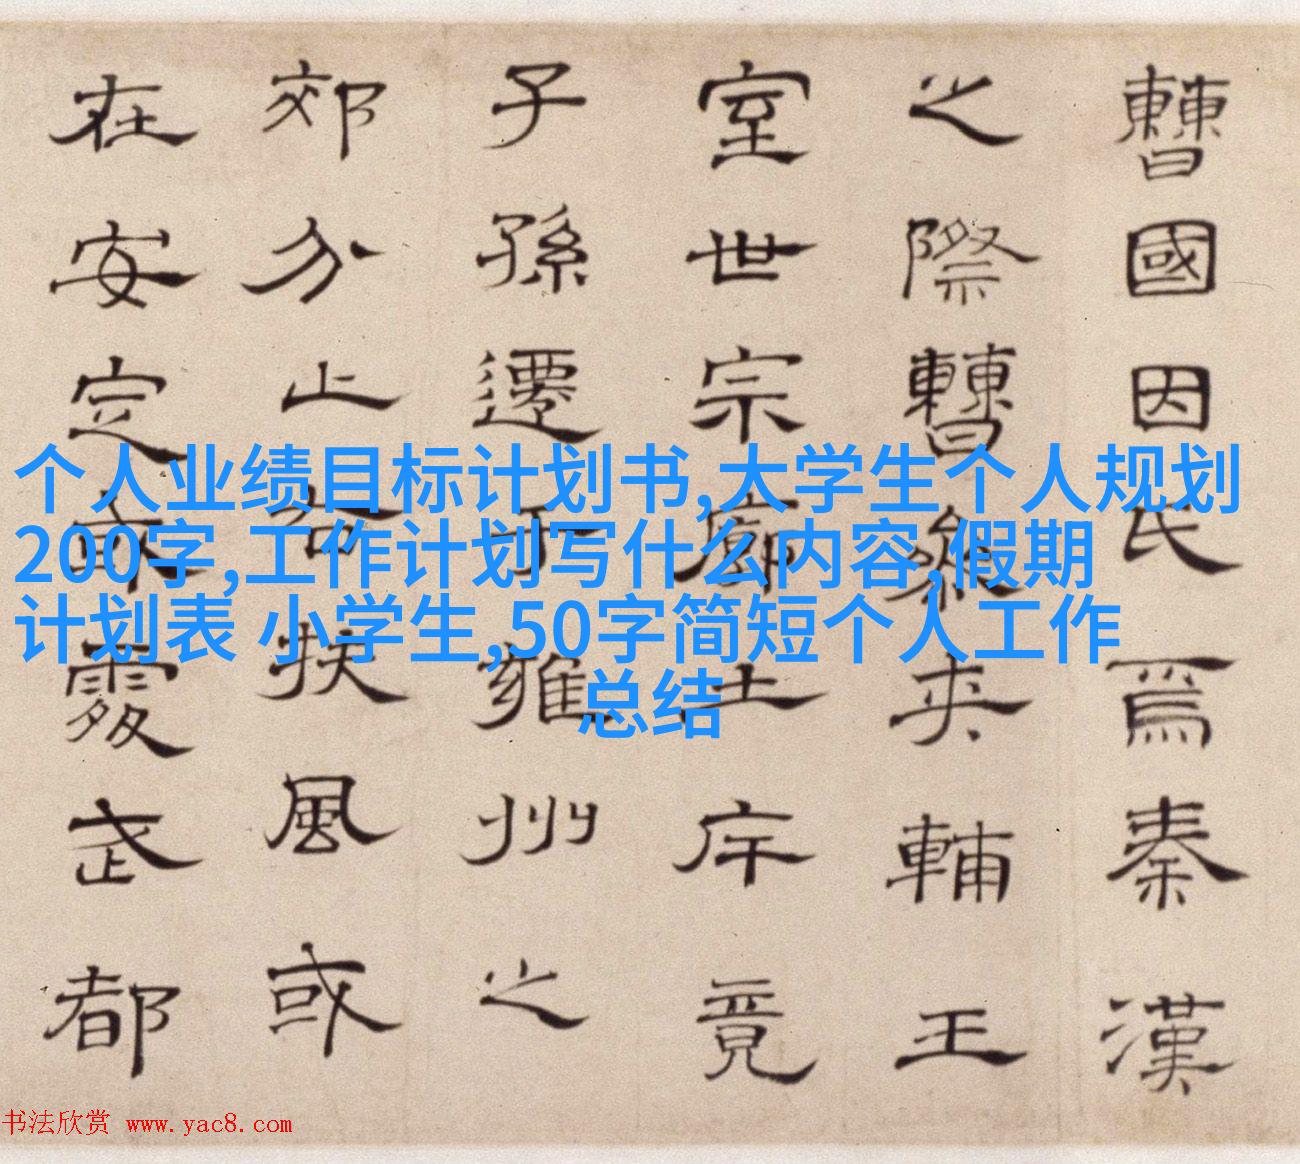 曹國因氏焉秦漢
之際曹參夾輔王
室世宗廓土斥竟
子孫遷于雍州之
郊分止右扶風或
在安定處武都
个人业绩目标计划书,大学生个人规划
200字,工作计划写什么内容,假期
计划表 小学生,50字简短个人工作
总结
书法欣赏 www.yac8.com